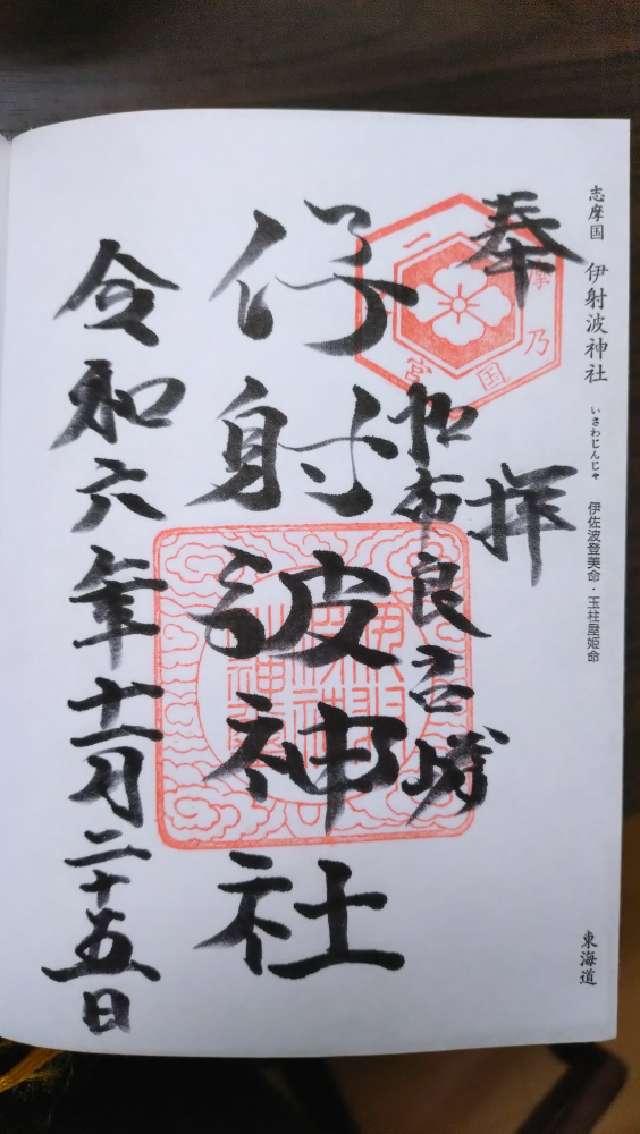 志摩国 伊射波神社 いさわじんじゃ 伊佐波登美命・玉柱屋姫命 東海道
奉拝
加布良古崎
伊射波神社
令和六年十一月二十五日